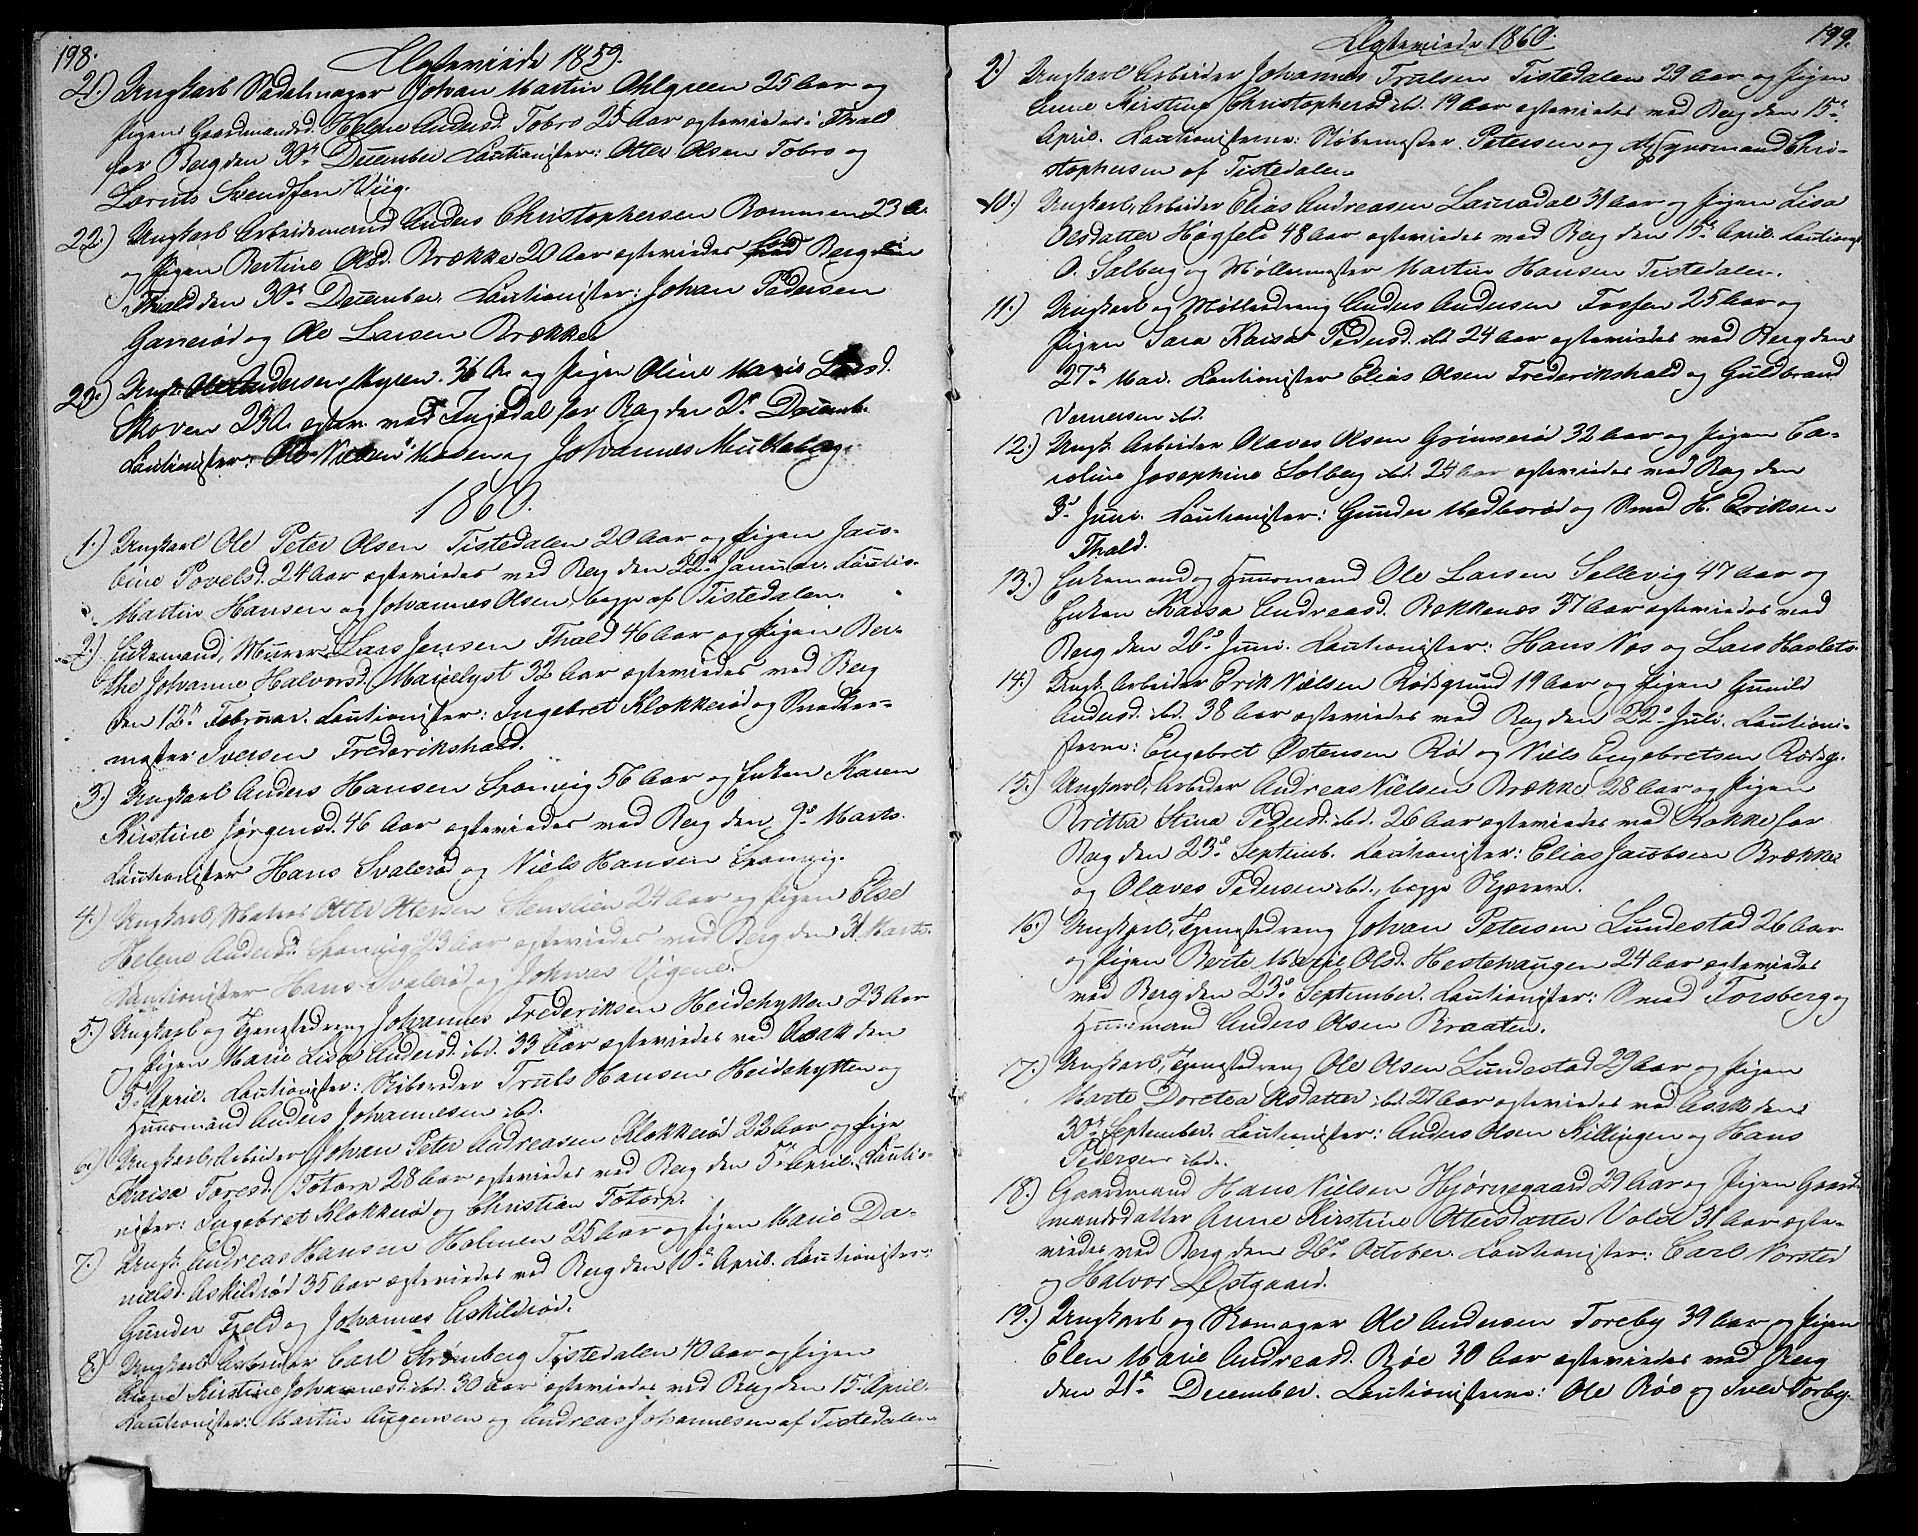 198.
Ægteviede 1859.
21.) Ungkarl Sadelmager Johan Martin Ohlgreen 25 Aar og
Pigen Gaardmandsd. Helene Andersd. Tobro 25 Aar ægteviedes i Fhald
for Berg den 30te December Cautionister: Otter Olsen Tobro og
Laruts Svendsen Viig.
22.) Ungkarl Arbeidsmand Anders Christophersen Rommen 23 A.
og Pigen Bertine Olsd. Brække 20 Aar ægteviedes Berg
Fhald den 30te December. Cautionister: Johan Pedersen
Garserød og Ole Larsen Brække.
22.) Ungk. Ole Andersen Myren 36 A. og Pigen Oline Marie Larsd.
Skoven 23 A. ægtev. med Ingedal for Berg den 2den Decemb.
Cautionister: Ole Nielsen Mosen og Johannes Mulleberg.
1860.
1.) Ungkarl Ole Peter Olsen Tistedalen 20 Aar og Pigen Jaco-
bine Povelsd. 24 Aar ægteviedes ved Berg den 22de Januar. Cautio.
Martin Hansen og Johannes Olsen, begge af Tistedalen.
2.) Enkemand, Murer Lars Jensen Fhald 46 Aar og Pigen Ber-
the Johanne Halvorsd. Marielyst 32 Aar ægteviedes ved Berg
den 12te Februar. Cautionister: Ingebret Klokkerød og Snedker-
mester Iversen Frederikshald.
3.) Ungkarl Anders Hansen Sponvig 56 Aar og Enken Karen
Kirstine Jørgensd. 46 Aar ægteviedes ved Berg den 9de Marts.
Cautionister Hans Svalerød og Niels Hansen Sponvig.
4.) Ungkarl, Matros Otter Ottersen Stenslien 24 Aar og Pigen Else
Helene Andersd. Sponvig 23 Aar ægteviedes ved Berg den 31 Marts.
Cautionister Hans Svalerød og Johnas Vigene.
5.) Ungkarl og Tjenestedreng Johannes Frederiksen Heidehytten 23 Aar
og Pigen Marie Lisa Andersd. ibd. 33 Aar ægteviedes ved Asak den
5te April. Cautionister: Skibsreder Truls Hansen Heidehytten og
Huusmand Anders Johannesen ibd.
6.) Ungkarl, Arbeider Johan Peter Andreasen Klokkerød 22 Aar og Pige
Kaisa Toresd. Totorp 28 Aar ægteviedes ved Berg den 5te April. Cautio-
nister: Ingebret Klokkerød og Christian Totorp.
7.) Ungk. Andreas Hansen Holmen 25 Aar og Pigen Marie Da-
nielsd. Askildrød 35 Aar ægteviedes ved Berg den 10de April. Cautionister:
Gunder Fjeld og Johannes Askildrød.
8.) Ungkarl Arbeider Carl Strømberg Tistedalen 40 Aar og Pigen
Anne Kirstine Johannesd. ibd. 30 Aar ægteviedes ved Berg den 15 April.
Cautionister: Martin Augensen og Andreas Johannesen af Tistedalen
Ægteviede 1860.
199.
9.) Ungkarl Arbeider Johannes Trulsen Tistedalen 29 Aar og Pigen
Anne Kirstine Christophersd. ibd. 19 Aar ægteviedes ved Berg den 15de
April. Cautionisterne: Støbemester Petersen og Chri-
stophersen af Tistedalen.
10.) Ungkarl, Arbeider Elias Andreasen Laursdal 31 Aar og Pigen Lisa
Olsdatter Høgfeld 48 Aar ægteviedes ved Berg den 15de April. Cautionist
O. Solberg og Møllemester Martin Hansen Tistedalen.
11.) Ungkarl og Mølledreng Anders Andersen Fossen 25 Aar og
Pigen Sara Kaisa Pedersd. ibd. 24 Aar ægteviedes ved Berg den
27de Mai. Cautionister Elias Olsen Frederikshald og Guldbrand
Vernersen ibd.
12.) Ungk. Arbeider Olaves Olsen Grimserød 32 Aar og Pigen Ca-
roline Josephine Solberg ibd. 24 Aar ægteviedes ved Berg den
3. Juni. Cautionister: Gunder Medborød og Smed H. Eriksen
Fhald.
13.) Enkemand og Huusmand Ole Larsen Sellevig 47 Aar og
Enken Kaisa Andreasd. Bakkenæs 37 Aar ægteviedes ved
Berg den 26de Juni. Cautionister: Hans Næs og Lars Hasleto.
14.) Ungk. Arbeider Erik Nielsen Rødsgrund 19 Aar og Pigen Gunild
Andersd. ibd. 38 Aar ægteviedes ved Berg den 22de Juli. Cautioni-
sterne: Engebret Østensen Rød og Niels Engebretsen Rødsg.
15.) Ungkarl, Arbeider Andreas Nielsen Brække 28 Aar og Pigen
Britta Stina Pedersd. ibd. 26 Aar ægteviedes ved Rokke for
Berg den 23de Septemb. Cautionister: Elias Jacobsen Brække
og Olaves Pedersen ibd., begge Skjærere.
16.) Ungkarl, Tjenestedreng Johan Petersen Lundestad 26 Aar
og Pigen Berte Marie Olsd. Hestehaugen 24 Aar ægteviedes
ved Berg den 23de September. Cautionister: Smed Forsberg og
Huusmand Anders Olsen Braaten.
17.) Ungkarl, Tjenestedreng Ole Olsen Lundestad 29 Aar og Pigen
Marte Dorotea Olsdatter ibd. 27 Aar ægteviedes ved Asak den
30te September. Cautionister: Anders Olsen Killingen og Hans
Pedersen ibd.
18.) Gaardmand Hans Nielsen Hjørnegaard 29 Aar og Pigen Gaard-
mandsdatter Anne Kirstine Ottersdatter Vold 31 Aar ægte-
viedes ved Berg den 26de October. Cautionister: Carl Norsted
og Halvor Østgaard.
19.) Ungkarl og Skomager Ole Andersen Toreby 39 Aar og Pigen
Elen Marie Andreasd. Røe 30 Aar ægteviedes ved Berg
den 21de December. Cautionisterne: Ole Røe og Iver Torby.